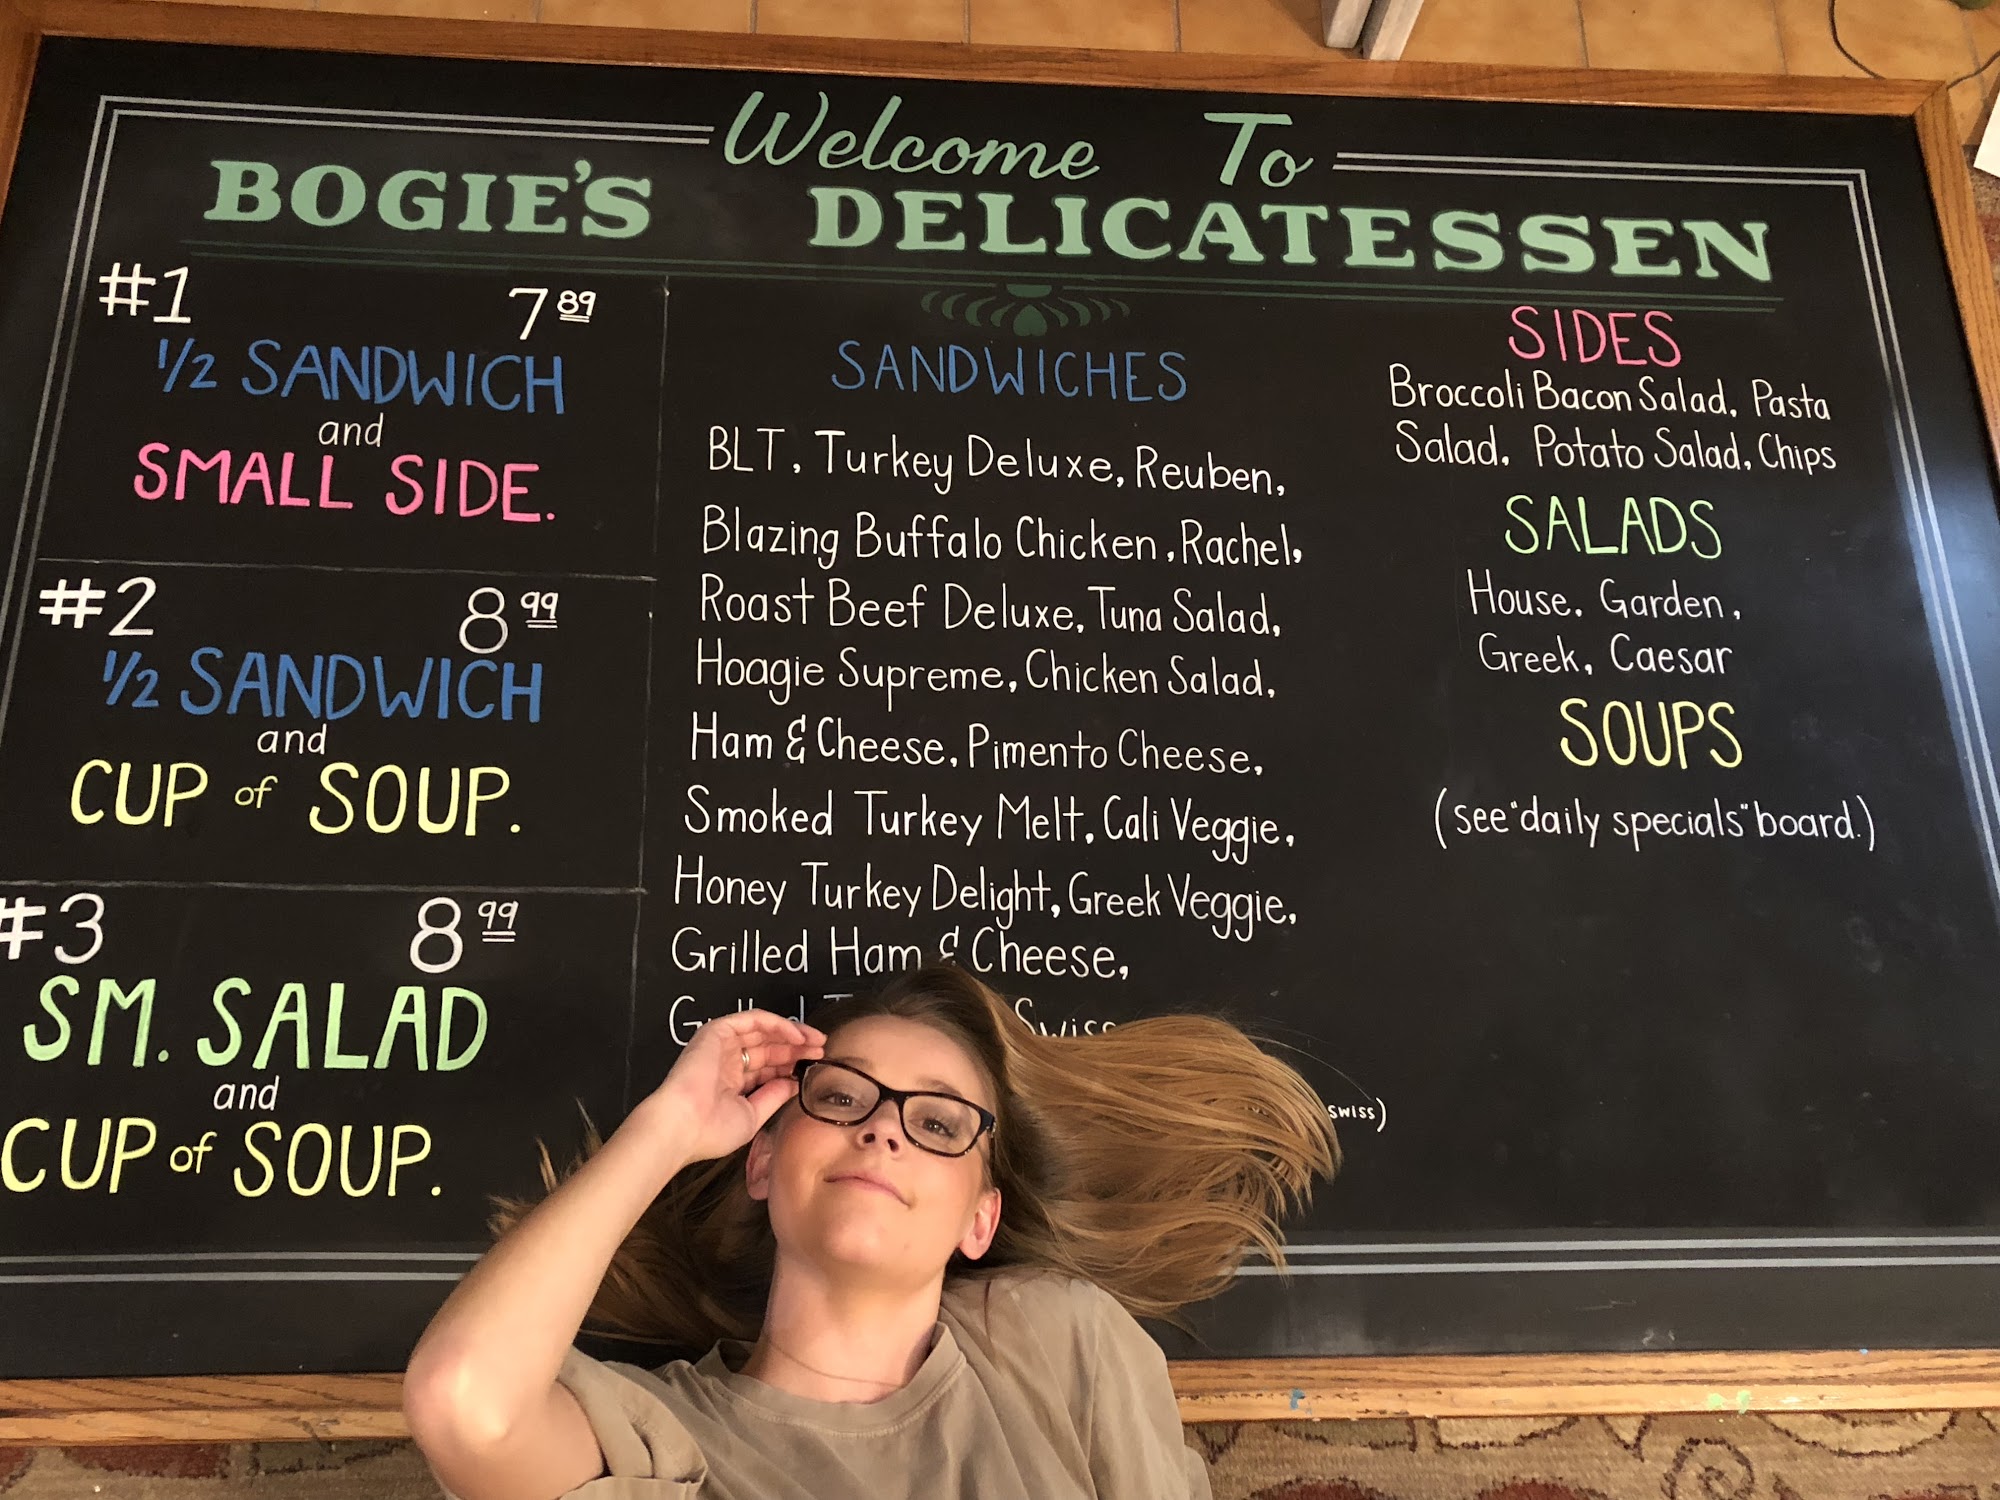 Welcome To
BOGIE'S DELICATESSEN
#1 7 89
1/2 SANDWICH
and
SMALL SIDE.
#2 8 99
1/2 SANDWICH
and
CUP of SOUP.
#3 8 99
SM. SALAD
and
CUP of SOUP.
SANDWICHES
BLT, Turkey Deluxe, Reuben,
Blazing Buffalo Chicken, Rachel,
Roast Beef Deluxe, Tuna Salad,
Hoagie Supreme, Chicken Salad,
Ham & Cheese, Pimento Cheese,
Smoked Turkey Melt, Cali Veggie,
Honey Turkey Delight, Greek Veggie,
Grilled Ham & Cheese,
Swiss
swiss)
SIDES
Broccoli Bacon Salad, Pasta
Salad, Potato Salad, Chips
SALADS
House, Garden,
Greek, Caesar
SOUPS
(see "daily specials" board.)